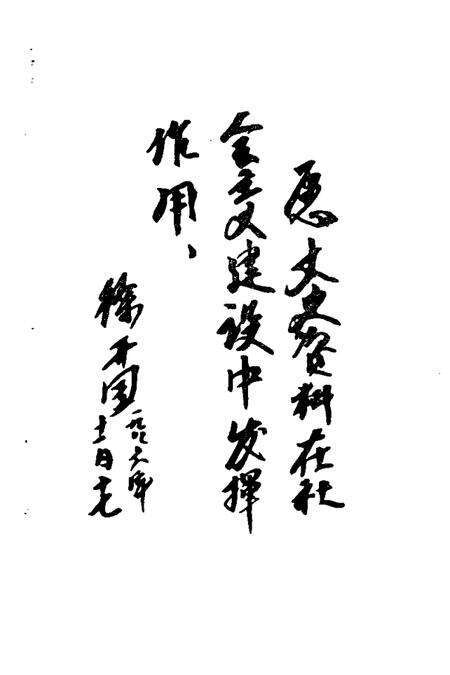 愿文史资料在社
会主义建设中发挥
作用、
徐
一九八六年
十二月